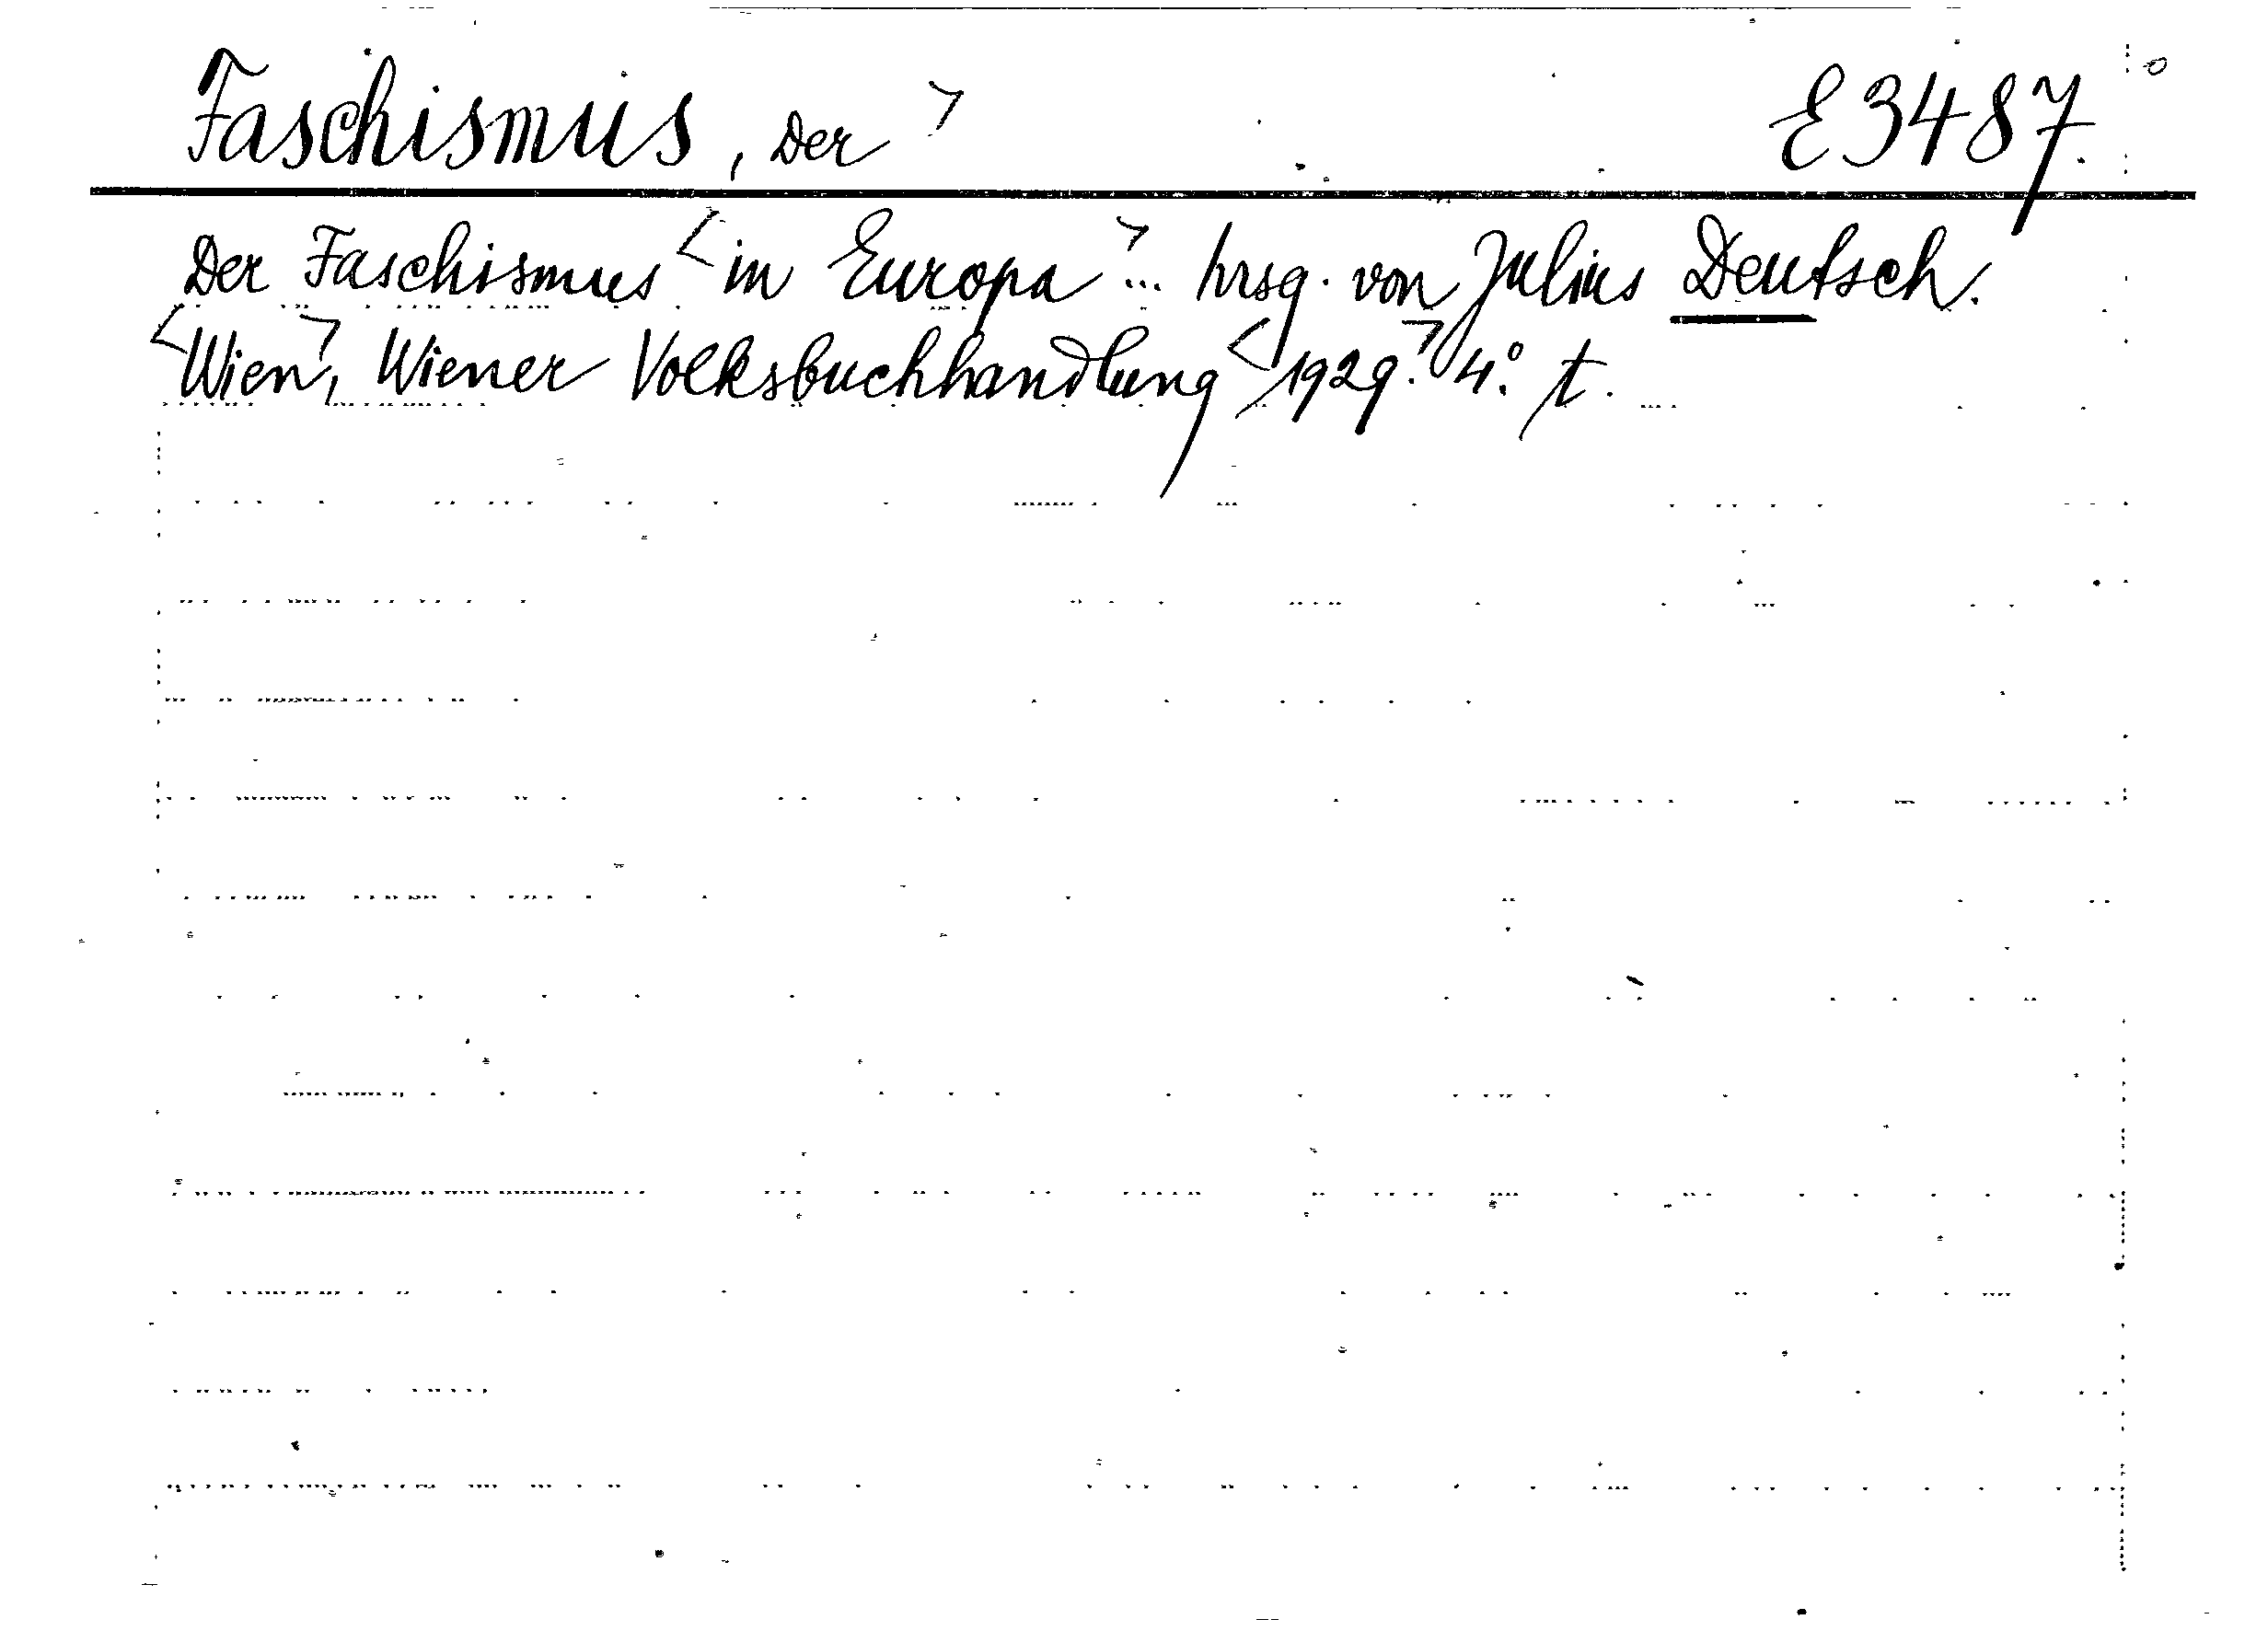 Faschismus, Der > E 3487.
Der Faschismus < in Europa >... hrsg. von Julius Deutsch.
<Wien>, Wiener Volksbuchhandlung <1929.> 4.° t.